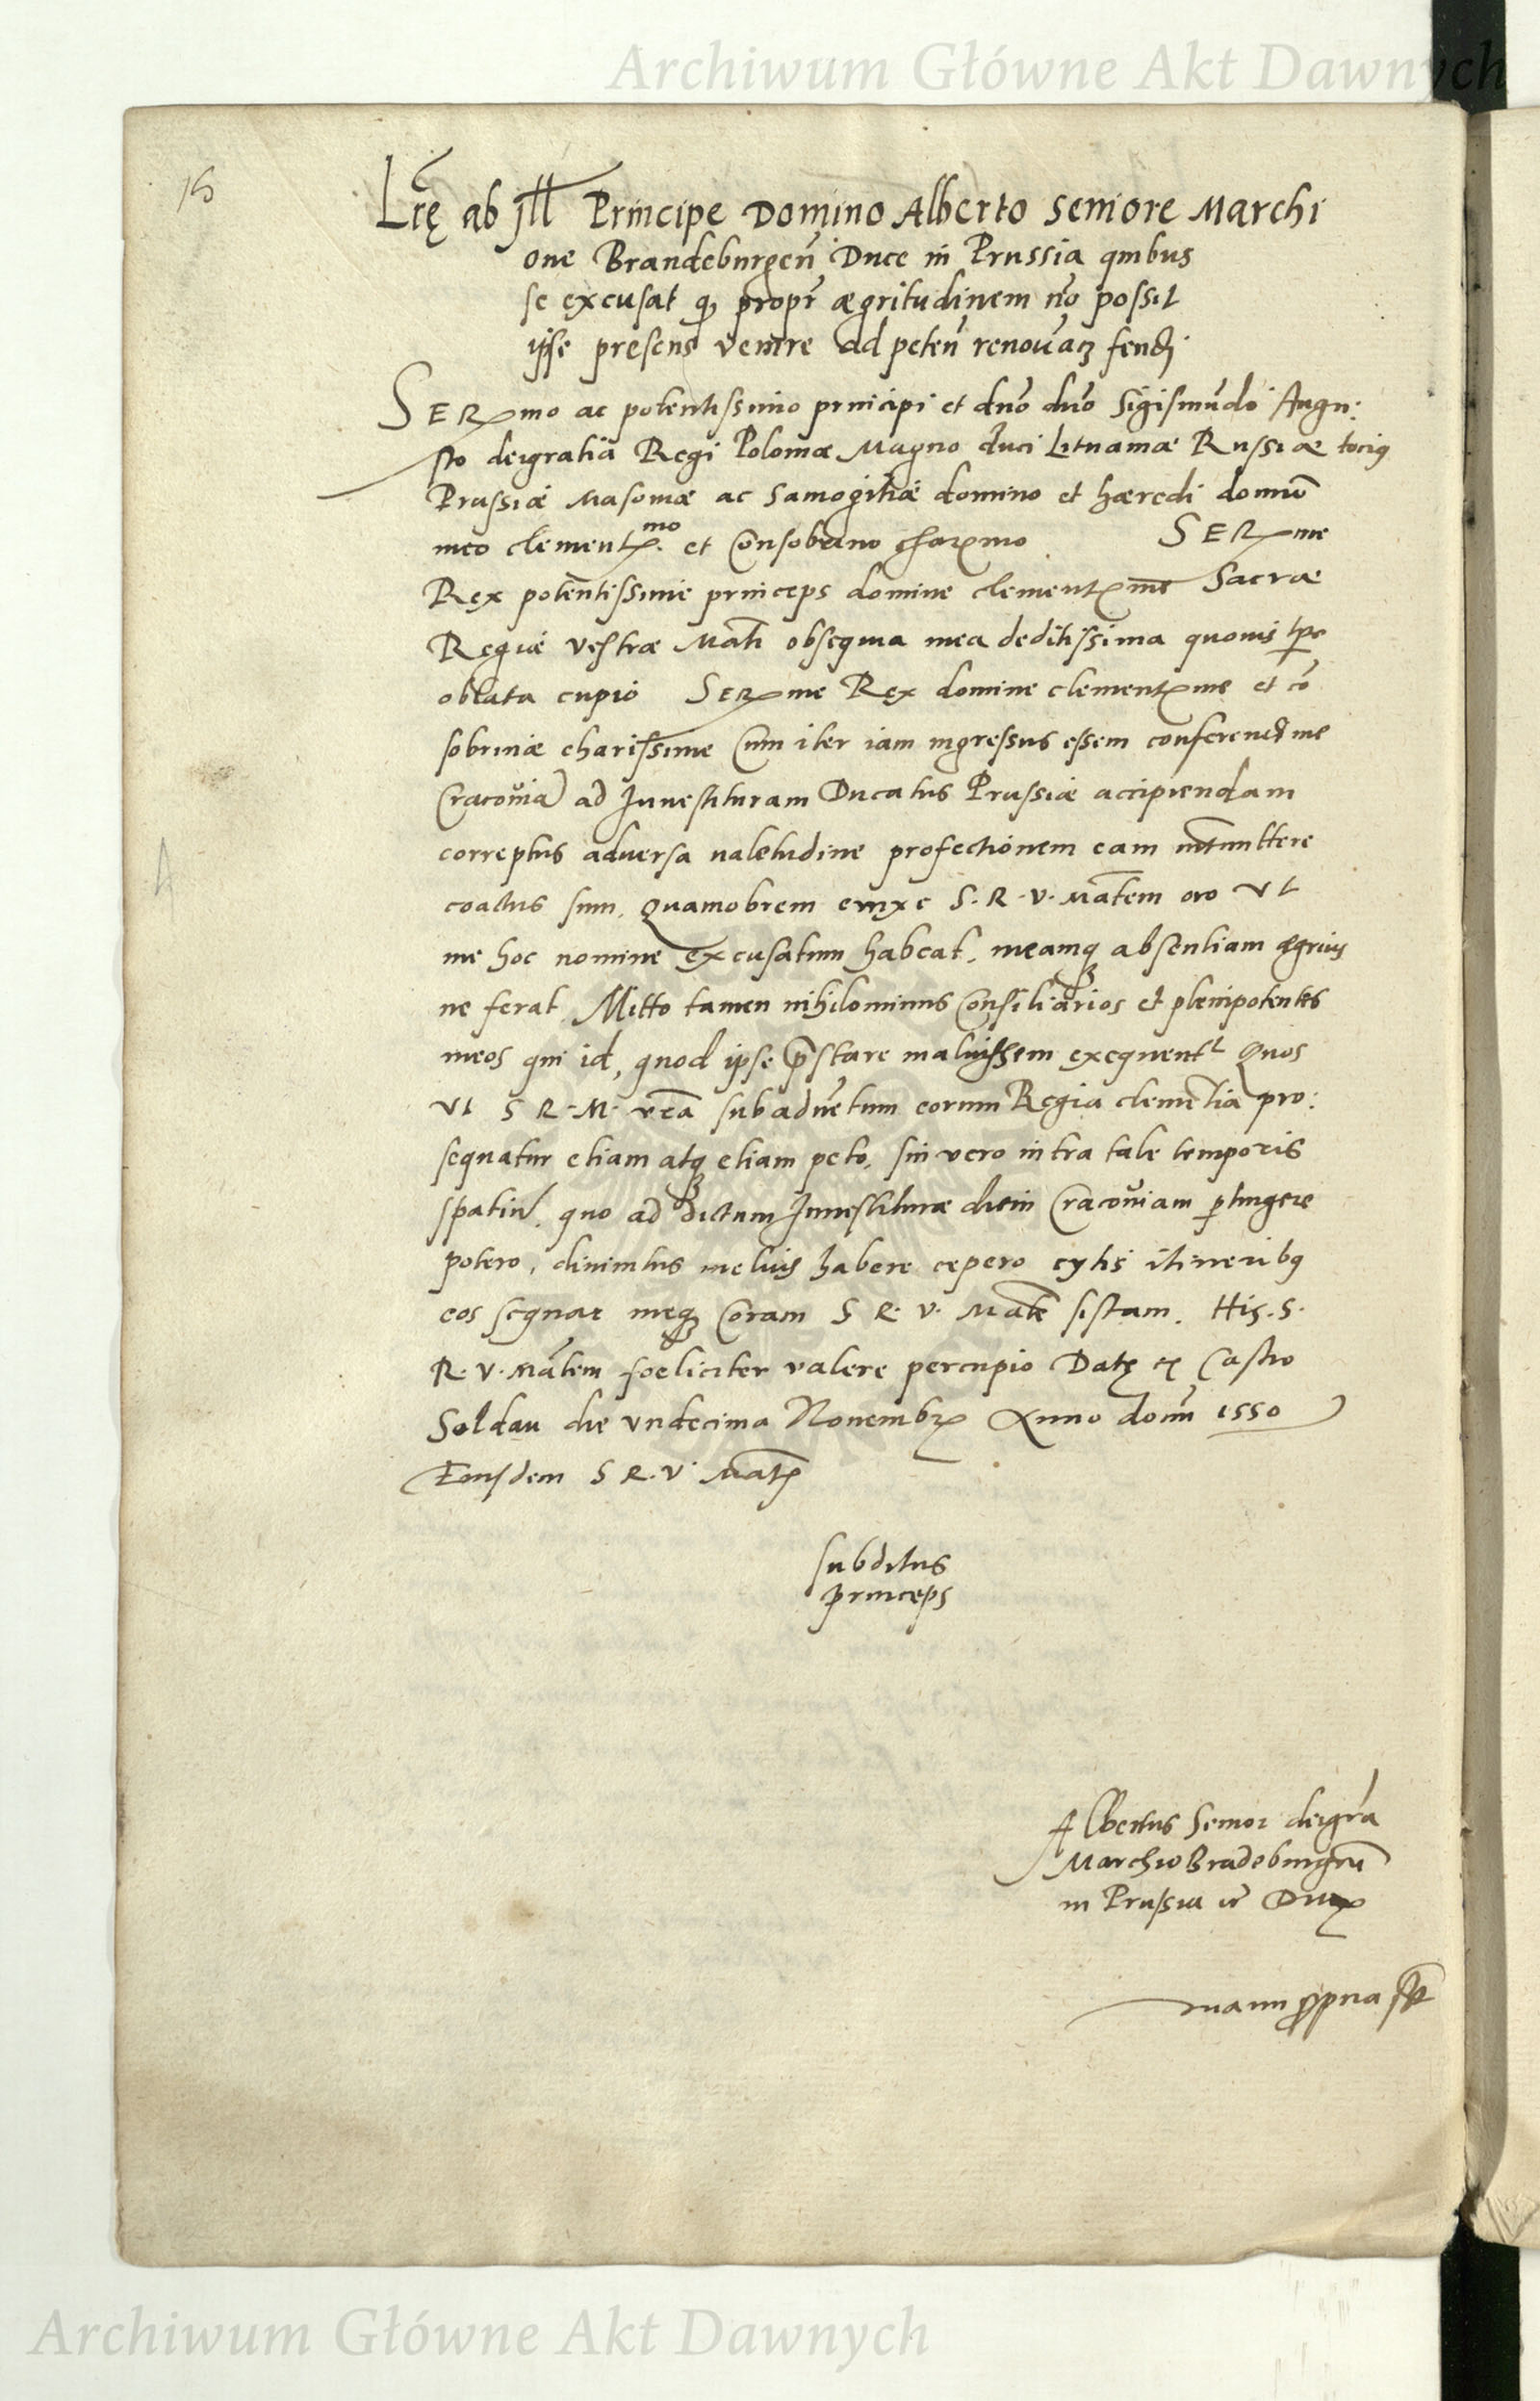 Archiwum Główne Akt Dawnych
15
Lrę ab Jll Principe Domino Alberto Seniore Marchi
one Brandeburgeñ Duce in Prussia quibus
se excusat q propr ægritudinem nõ possit
ipse presens venire ad peteñ renovaz feudi
SERmo ac potentissimo principi et dno dno Sigismũdo Augu:
sto dei gratia Regi Poloniæ Magno duci Lituaniæ Russiæ tocius
Prussiæ Masoniæ ac Samogitiæ domino et hæredi domio
meo clement. mo et Consobrino charmo SERme
Rex potentissime princeps domine clementme Sacræ
Regiæ vestræ Mati obsequia mea deditissima quovis tpe
oblata cupio SERme Rex domine clementme et cõ
sobrine charissime Cum iter iam ingressus essem conferendi me
Cracoviã ad Investituram Ducatus Prussiæ accipiendam
correptus adversa valetudine profectionem eam intermittere
coactus sum. Quamobrem enixe S. R. V. Matem oro vt
me hoc nomine excusatum habeat, meamq absentiam ægrius
ne ferat Mitto tamen nihilominus Consiliarios et plenipotentes
meos qui id, quod ipse pstare maluissem exequent Quos
Vt S R. M. vra sub advẽtum eorum Regia clemẽtia pro:
sequatur etiam atq etiam peto, sin vero intra tale temporis
spatiũ, quo ad dictum Investituræ diem Cracoviam ptingere
potero, divinitus melius habere cepero cytis itineribq
eos sequar meq Coram S R. V. Mate sistam. His. S.
R. V. Matem foeliciter valere percupio Datę ex Castro
Soldau die vndecima Novembr Anno domi 1550
Eiusdem S R. V. Matis
subditus
princeps
Albertus Senior dei gra
Marchio Brãdeburgeñ
in Prussia Dux
manu ppria sst
Archiwum Główne Akt Dawnych